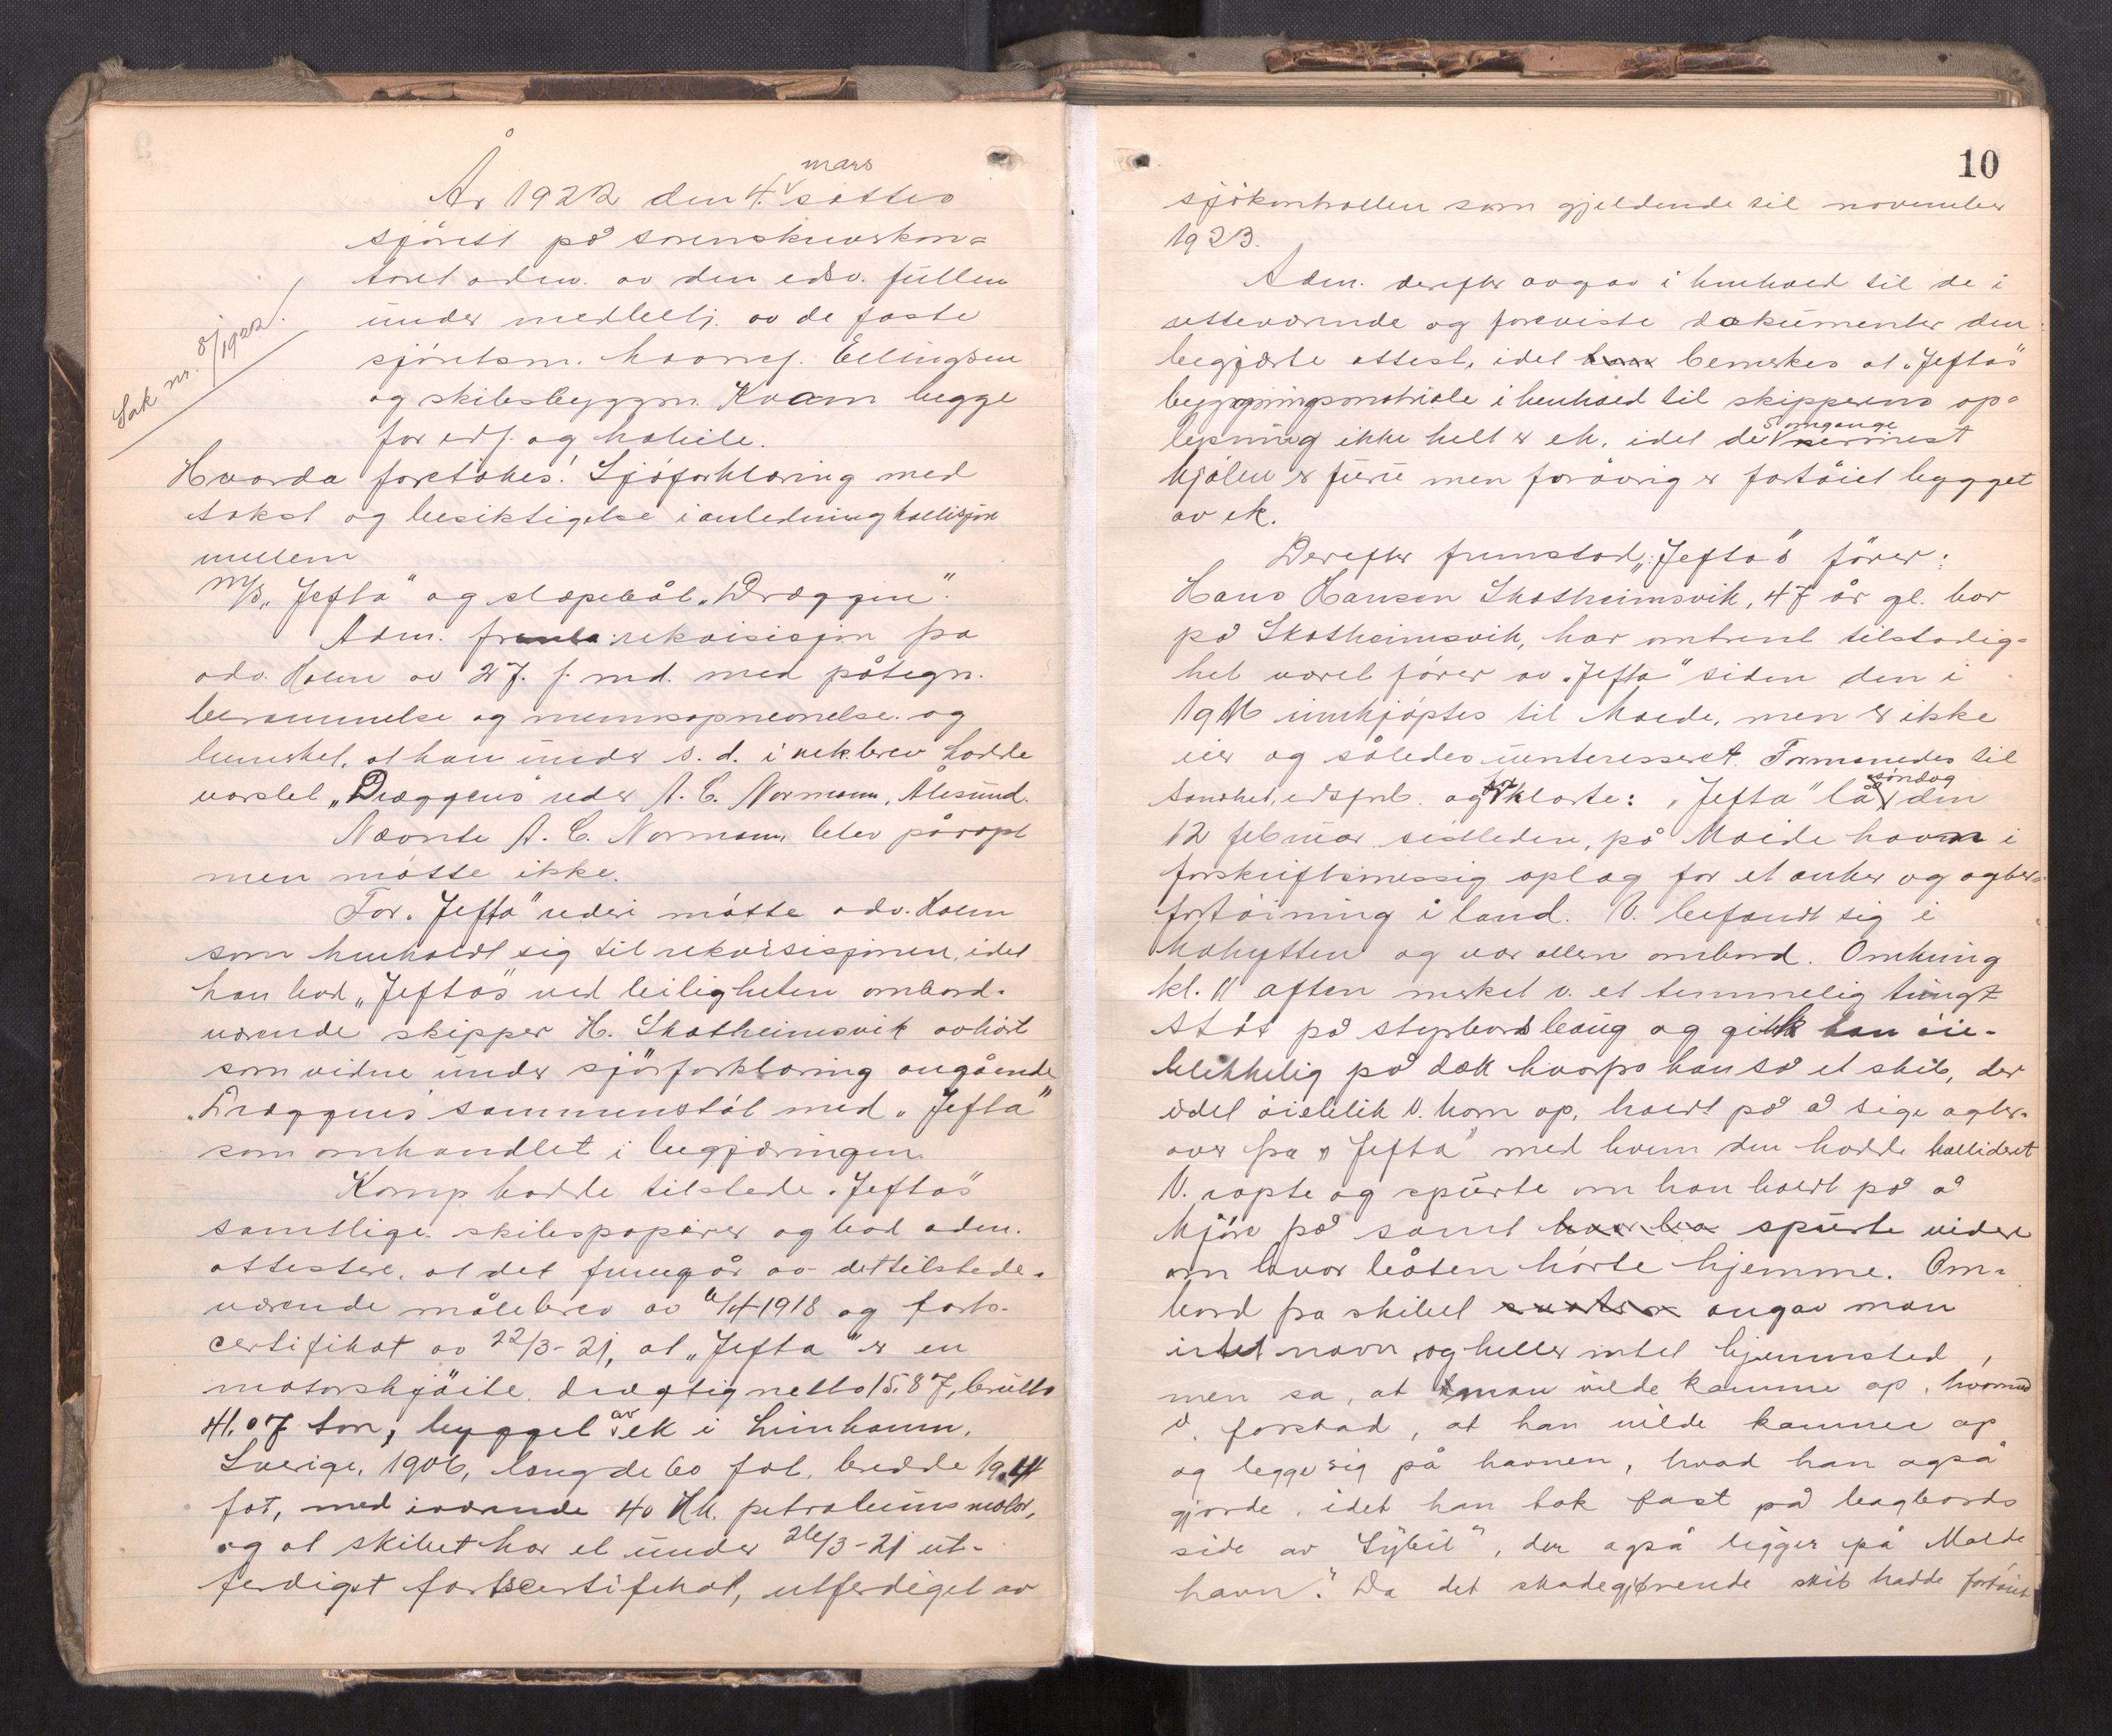 År 1922 den 4. mars sattes
sjörett på sorenskriverkon=
toret adm. av den edsv. fullm
under medbetj. av de faste
sjöretsm. havnef. Ellingsen
og skibsbyggm. Kvam begge
for edf. og habile.
Sak nr. 8/1922.
Hvorda foretokes: Sjöforklaring med
takst og besiktigelse i anledning kollisjon
mellem
M/S „Jefta" og slæpebåt „Dræggen".
Adm. freml. rekvisisjon fra
adv. Holm av 27. f. md. med påtegn.
berammelse og mennsopnevnelse og
bemerket, at han under s. d. i rek. brev hadde
varslet „Dræggens" reder A. C. Normann, Ålesund.
Nævnte A. C. Normann blev påropt
men mötte ikke.
For „Jefta" rederi mötte adv. Holm
som henholdt sig til rekvisisjonen, idet
han bad „Jeftas" ved leiligheten ombord-
værende skipper H. Skotheimsvik avhört
som vidne under sjöforklaring angående
„Dræggens" sammenstöt med „Jefta"
som omhandlet i begjæringen.
Komp. hadde tilstede „Jeftas"
samtlige skibspapirer og bad adm.
attestere, at det fremgår av det tilstede-
værende målebrev av 11/4 1918 og farts-
certifikat av 22/3-21, at „Jefta" er en
motorskjöite dræqtig netto 15.87, brutto
41.07 ton, bygget av ek i Limhamn,
Sverige, 1906, længde 60 fot, bredde 19.4
fot, med iværende 40 Hk. petroleumsmotor,
og at skibet har et under 26/3-21 ut-
ferdiget fartscertifikat, utferdiget av
10
sjökontrollen som gjeldende til november
1923.
Adm. derefter avgav i henhold til de i
rettenværende og foreviste dokumenter den
begjærte attest, idet bemerkes at „Jeftas"
bygningsmateriale i henhold til skipperens op=
lysning ikke helt er ek, idet de 5 omgange nærmest
kjölen er furu men forövrig er fartöiet bygget
av ek.
Derefter fremstod „Jeftas" förer:
Hans Hansen Skotheimsvik, 47 år gl. bor
på Skotheimsvik, har omtrent tilstadig=
het været förer av „Jefta" siden den i
1916 innkjöptes til Molde, men er ikke
eier og således uinteresseret. Formanedes til
sandhet, edsforb. og forklarte: „Jefta" lå söndag den
12 februar sistleden, på Molde havn i
forskriftsmessig oplag for et anker og agter=
fortöining i land. V. befandt sig i
kahytten og var allen ombord. Omkring
kl. 11 aften merket v. et temmelig tungt
stöt på styrbords baug og gikk öie-
blikkelig på dækk hvorpå han så et skib, der
idet öieblik v. kom op, holdt på å sige agter-
over fra „Jefta" med hvem den hadde kollideret
V. ropte og spurte om han holdt på å
kjöre på samt spurte videre
om hvor båten hörte hjemme. Om=
bord fra skibet angav man
intet navn og heller intet hjemmsted,
men sa, at man vilde komme op, hvormed
v. forstod, at han vilde komme op
og legge sig på havnen, hvad han også
gjorde, idet han tok fast på bagbords
side av „Sybil", der også ligger på Molde
havn. Da det skadegjörende skib hadde fortöiet